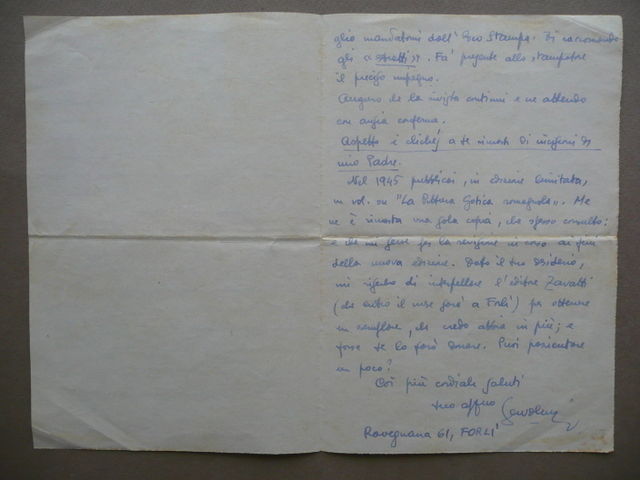 glio mandatomi dall'Eco Stampa. Ti raccomando
gli "estratti". Fa' presente allo stampatore
il preciso impegno.
Auguro che la rivista continui e ne attendo
con ansia conferma.
Aspetto i clichéj a te rimasti di incisioni di
mio Padre.
Nel 1945 pubblicai, in edizione limitata,
un vol. su "La Pittura Gotica romagnola". Me
ne è rimasta una sola copia, che spesso consulto:
e che mi serve per la revisione in corso ai fini
della nuova edizione. Dato il tuo desiderio,
mi riservo di interpellare l'editore Zavatti
(che entro il mese sarà a Forlì) per ottenere
un esemplare, che credo abbia in più; e
forse te lo farò donare. Puoi pazientare
un poco?
Coi più cordiali saluti
tuo affmo
Ravegnana 61, FORLI'